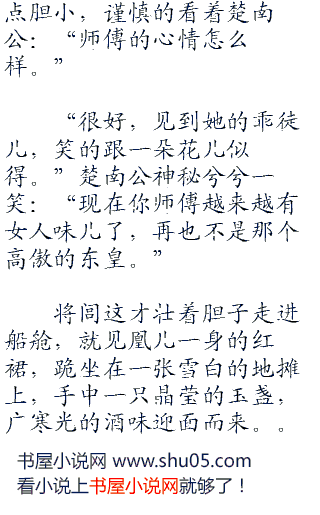 点胆小，谨慎的看着楚南
公：“师傅的心情怎么
样。”
“很好，见到她的乖徒
儿，笑的跟一朵花儿似
得。”楚南公神秘兮兮一
笑：“现在你师傅越来越有
女人味儿了，再也不是那个
高傲的东皇。”
将闾这才壮着胆子走进
船舱，就见凰儿一身的红
裙，跪坐在一张雪白的地摊
上，手中一只晶莹的玉盏，
广寒光的酒味迎面而来。。
书屋小说网 www.shu05.com
看小说上书屋小说网就够了！